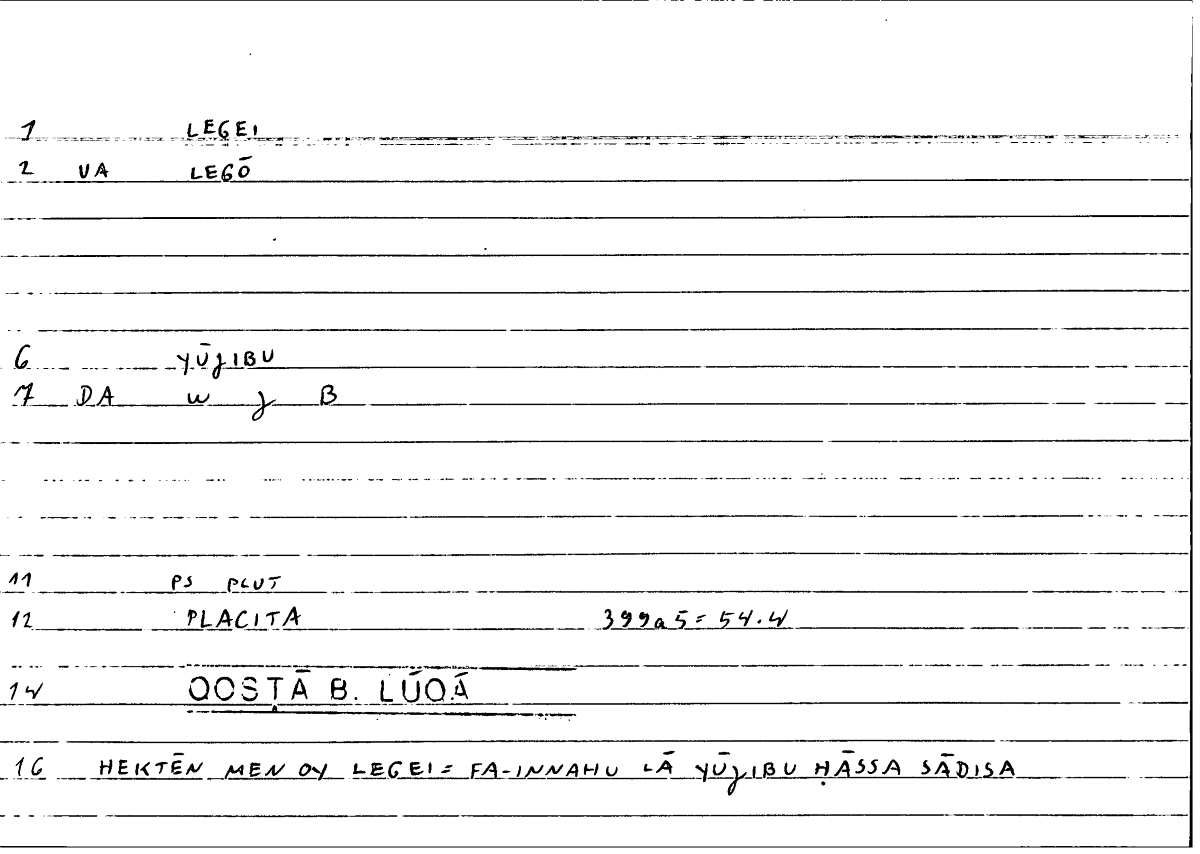 1 LEGEI
2 VA LEGŌ
6 YŪJIBU
7 DA W J B
11 PS PLUT
12 PLACITA 399a5=54.4
14 QOSṬĀ B. LŪQĀ
16 HEKTĒN MEN OY LEGEI= FA-INNAHU LĀ YŪJIBU ḤĀSSA SĀDISA